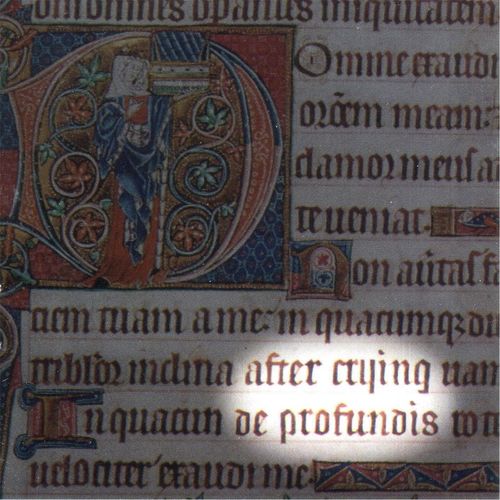 omnes opantes iniquitatem
Omine exaudi
orõem meam:
clamor meus a
te ueniat.
Non au͛tas fa
ciem tuam a me: in quacumqꝫ di
tribulor inclina after crying uam
In quacun de profundis
uelociter exaudi me